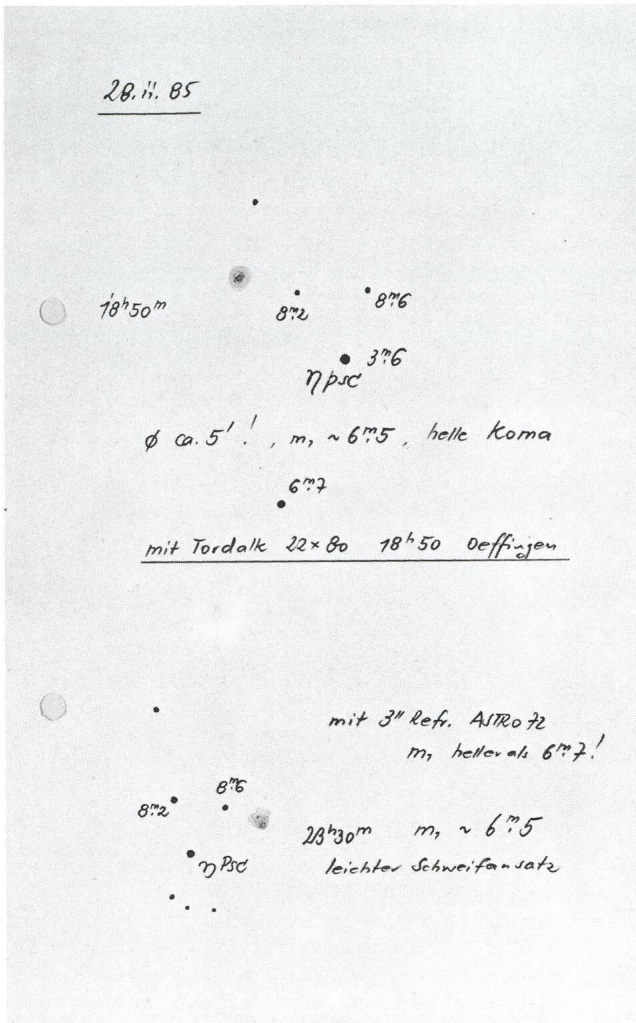 28. ii. 85
18ʰ50ᵐ
8ᵐ.2
8ᵐ.6
3ᵐ.6
η psc
ø ca. 5' !, m₁ ~ 6ᵐ.5, helle Koma
6ᵐ.7
mit Tordalk 22×80 18ʰ50 Oeffingen
mit 3" Refr. ASTRO 72
m₁ heller als 6ᵐ.7!
8ᵐ.6
8ᵐ.2
23ʰ30ᵐ m₁ ~ 6ᵐ.5
η Psc
leichter Schweifansatz